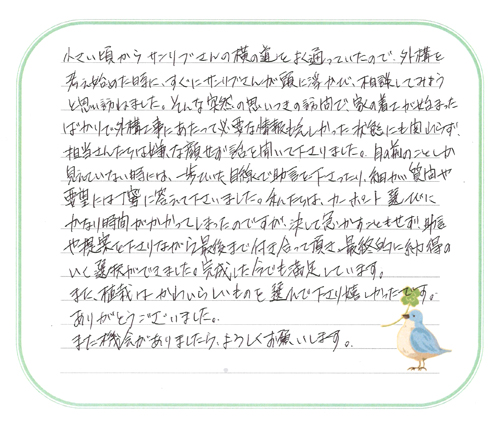 小さい頃からサンリブさんの横の道をよく通っていたので、外構を
考え始めた時に、すぐにサンリブさんが頭に浮かび、相談してみよう
と思い訪ねました。そんな突然の思いつきの訪問で、家の着工が始まった
ばかりで外構工事にあたって必要な情報も乏しかった状態にも関わらず、
担当さんたちは嫌な顔せず話を聞いて下さりました。目の前のことしか
見えていない時には、一歩ひいた目線で助言を下さったり、細かい質問や
要望には丁寧に答えて下さいました。私たちは、カーポート選びに
かなり時間がかかってしまったのですが、決して急かすこともせず、助言
や提案を下さりながら最後まで付き合って頂き、最終的に納得の
いく選択ができました。完成した今でも満足しています。
また、植栽はかわいらしいものを選んで下さり嬉しかったです。
ありがとうございました。
また機会がありましたら、よろしくお願いします。